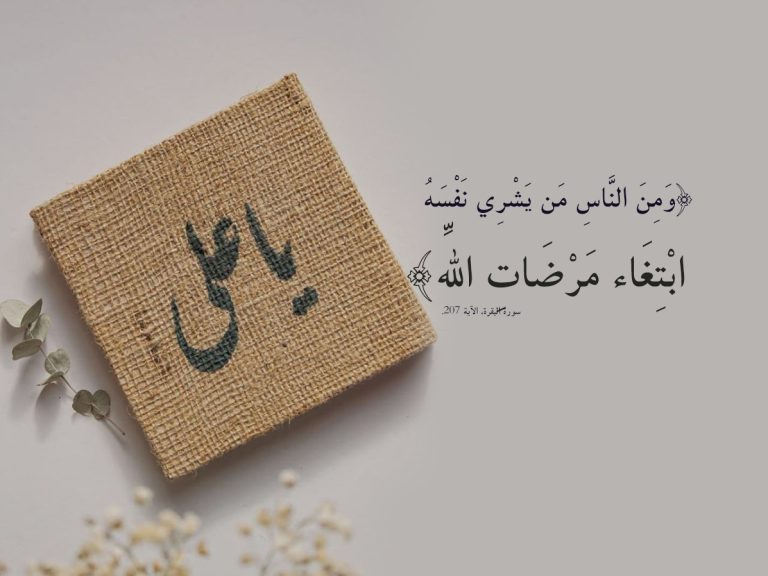 يا على
﴿وَمِنَ النَّاسِ مَن يَشْرِي نَفْسَهُ
ابْتِغَاء مَرْضَاتِ اللّهِ﴾
سورة البقرة، الآية 207.